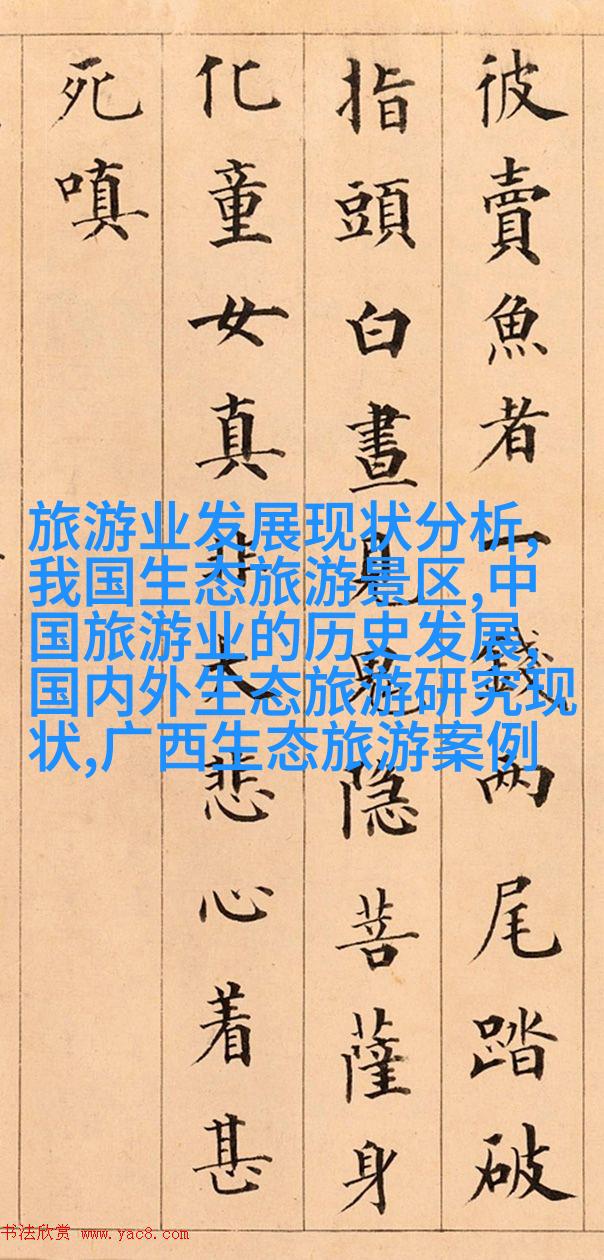 彼賣魚者一錢两尾踏破
指頭白晝見鬼隐菩薩身
化童女真非大悲心着甚
死嗔
旅游业发展现状分析,
我国生态旅游景区,中
国旅游业的历史发展,
国内外生态旅游研究现
状,广西生态旅游案例
书法欣赏 www.yac8.com